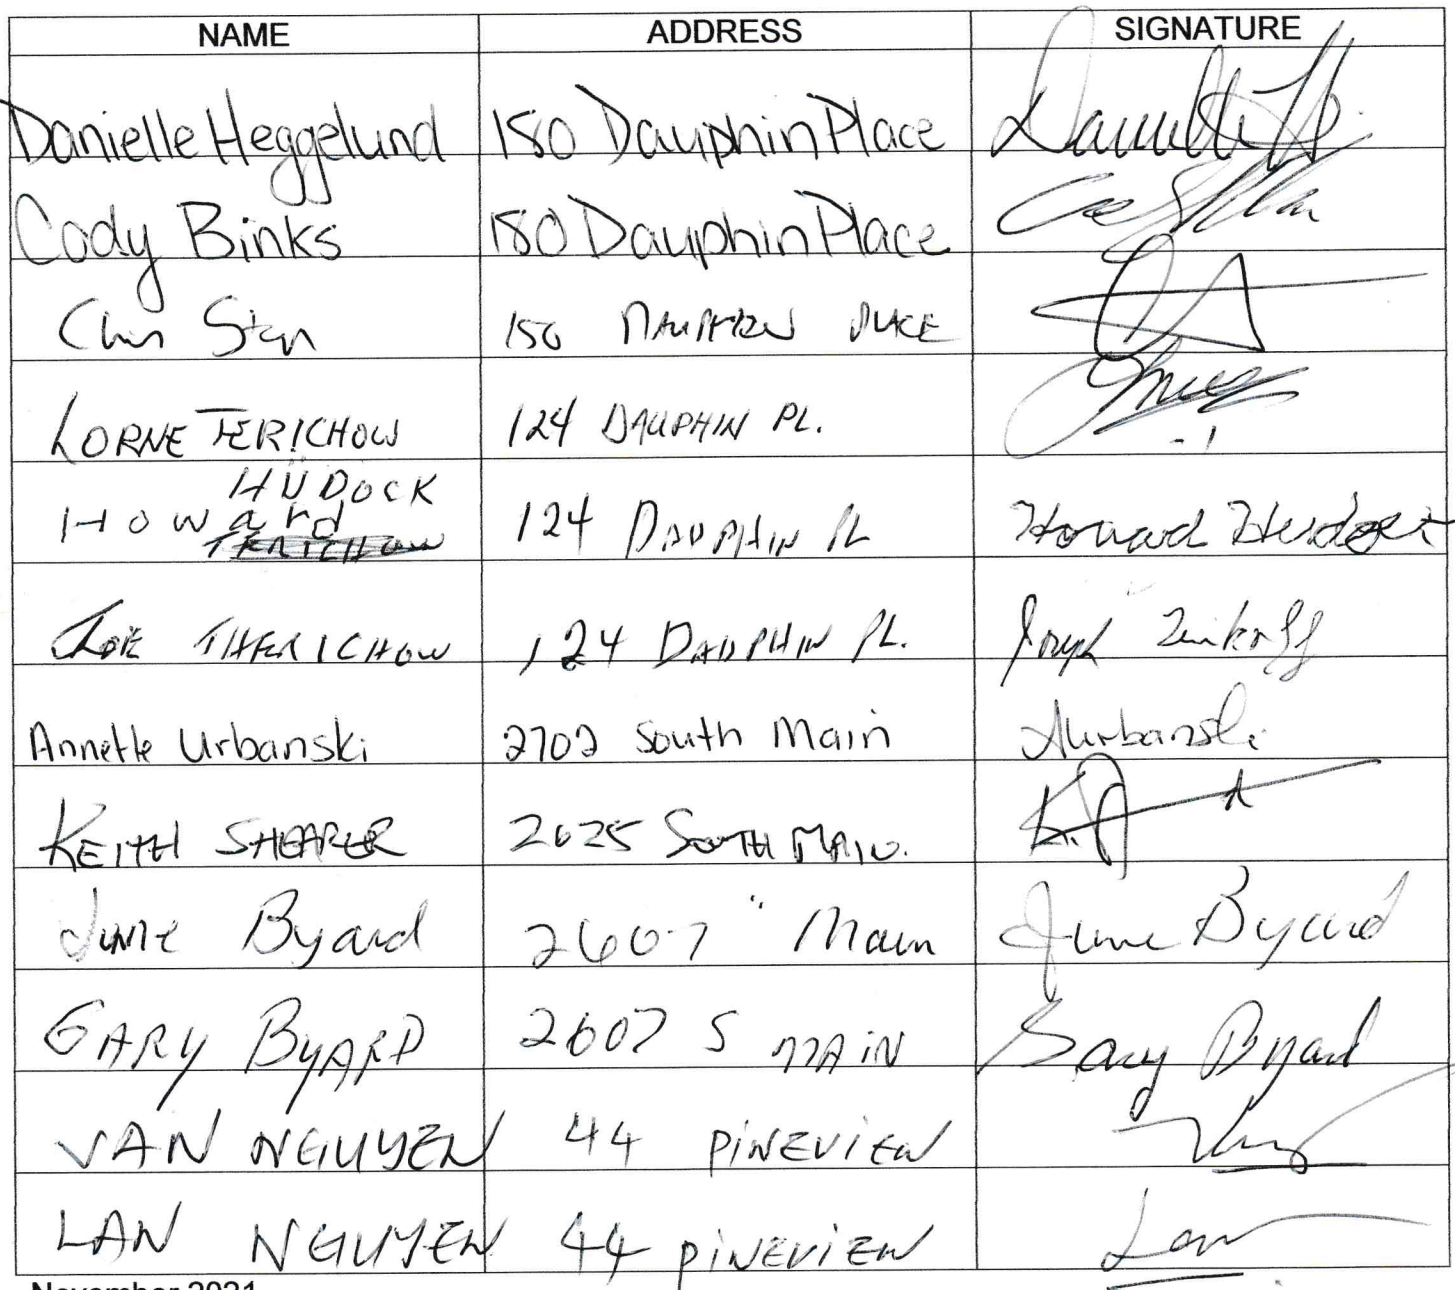 NAME ADDRESS SIGNATURE
Danielle Heggelund 180 Dauphin Place
Cody Binks 180 Dauphin Place
150 PLACE
LORNE TERICHOW 124 DAUPHIN PL.
HUDOCK
Howard 124 DAUPHIN PL Howard
TERICHOW
JOE THERICHOW 124 DAUPHIN PL. Joseph
Annette Urbanski 2702 South Main AUrbanski
KEITH SHEARER 2625 SOUTH MAIN.
June Byard 2607 " Main June Byard
GARY BYARD 2607 S MAIN Gary Byard
VAN NGUYEN 44 PINEVIEW
LAN NGUYEN 44 PINEVIEW Lan
November 2021